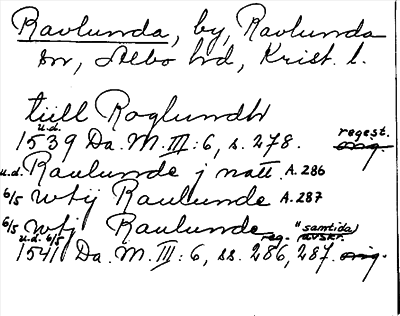 Ravlunda, by, Ravlunda
sn, Albo hd, Krist. l.
tüll Roglundh
u.d.
1539 Da. M. III: 6, s. 278. regest. orig.
u.d. Raulunde j natt. A. 286
6/5 wtij Raulunde A. 287
6/5 wtj Raulunde
u.d. 6/5 reg. "samtida avskr.
1541 Da. M. III: 6, ss. 286, 287. orig.